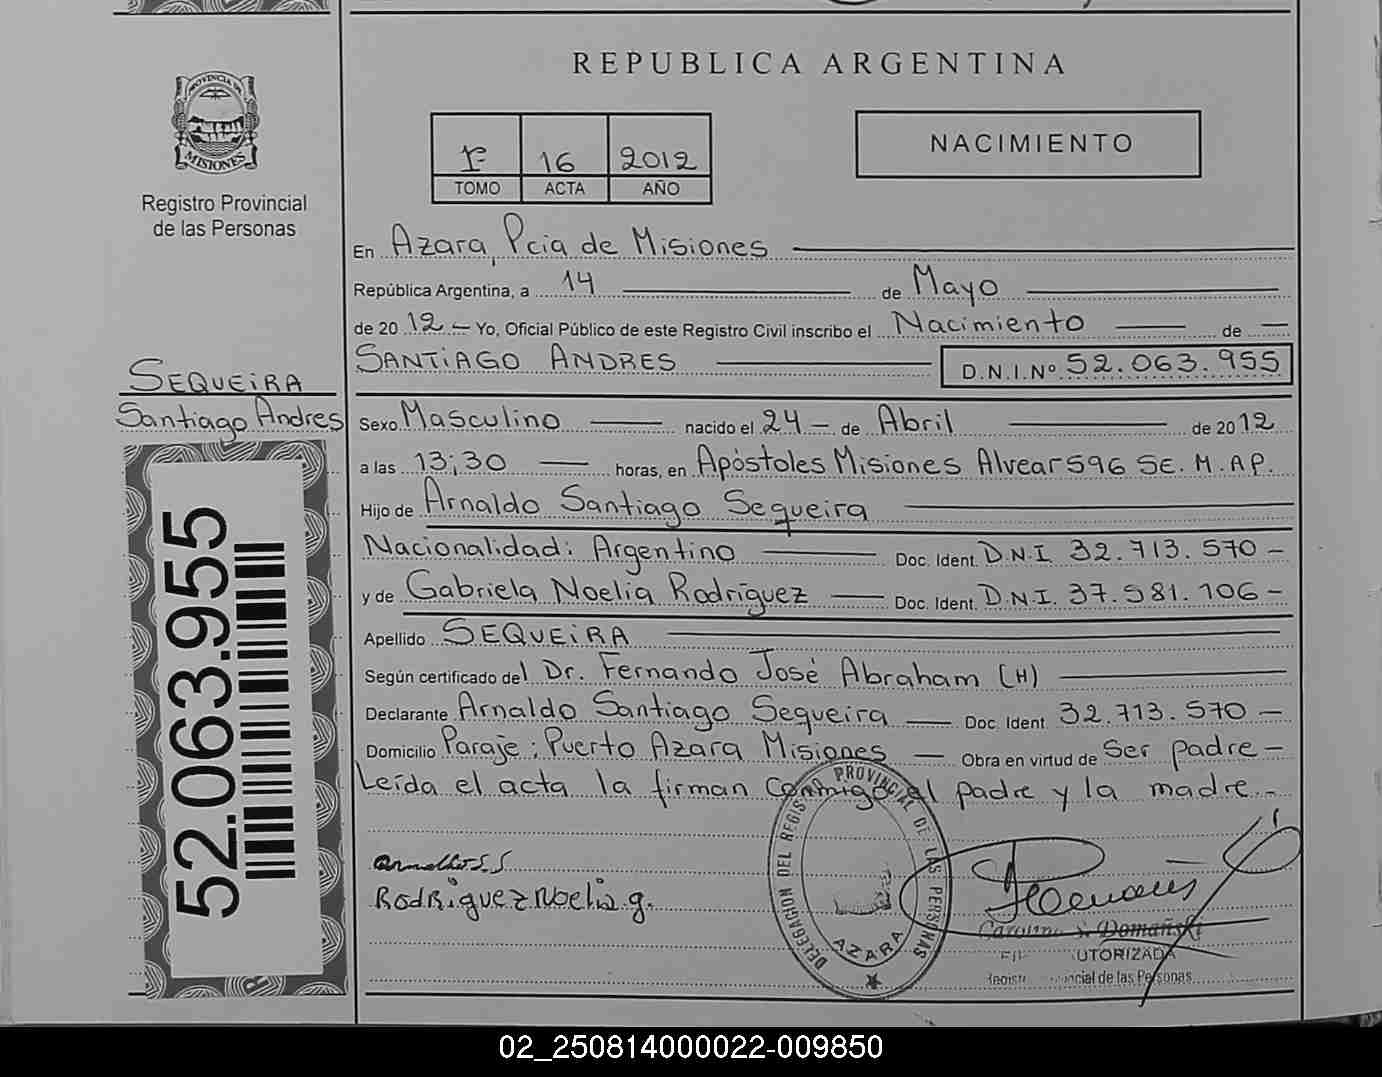 REPUBLICA ARGENTINA
PROVINCIA DE
MISIONES
Registro Provincial
de las Personas
1º 16 2012
TOMO ACTA AÑO
NACIMIENTO
En Azara, Pcia de Misiones
República Argentina, a 14 de Mayo
de 2012 - Yo, Oficial Público de este Registro Civil inscribo el Nacimiento de
SANTIAGO ANDRES D.N.I.Nº 52.063.955
SEQUEIRA
Santiago Andres
Sexo Masculino nacido el 24 - de Abril de 2012
a las 13:30 horas, en Apóstoles Misiones Alvear 596 SE. M. AP.
Hijo de Arnaldo Santiago Sequeira
Nacionalidad: Argentino Doc. Ident. D.N.I. 32.713.570 -
y de Gabriela Noelia Rodríguez Doc. Ident. D.N.I. 37.581.106 -
Apellido SEQUEIRA
Según certificado del Dr. Fernando José Abraham (H)
Declarante Arnaldo Santiago Sequeira Doc. Ident. 32.713.570 -
Domicilio Paraje: Puerto Azara Misiones Obra en virtud de Ser padre -
Leída el acta la firman conmigo el padre y la madre.-
52.063.955
Rodriguez Noelia g.
DELEGACION DEL REGISTRO PROVINCIAL DE LAS PERSONAS
AZARA
Domañski
UTORIZADA
de las Personas
02_250814000022-009850